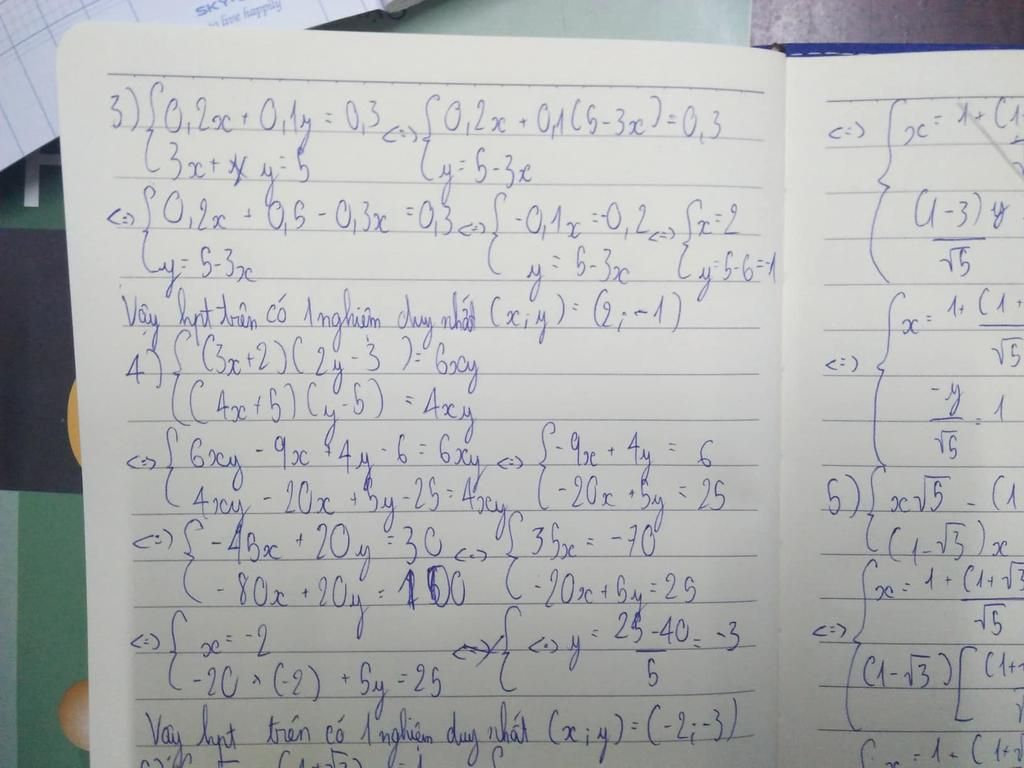 SKY-
to live happily
3) { 0,2x + 0,1y = 0,3 <=> { 0,2x + 0,1(5-3x) = 0,3
{ 3x + y = 5 { y = 5-3x
<=> { 0,2x + 0,5 - 0,3x = 0,3 <=> { -0,1x = -0,2 <=> { x = 2
{ y = 5-3x { y = 5-3x { y = 5-6 = -1
Vậy hpt trên có 1 nghiệm duy nhất (x; y) = (2; -1)
4) { (3x+2)(2y-3) = 6xy
{ (4x+5)(y-5) = 4xy
<=> { 6xy - 9x + 4y - 6 = 6xy <=> { -9x + 4y = 6
{ 4xy - 20x + 5y - 25 = 4xy { -20x + 5y = 25
<=> { -45x + 20y = 30 <=> { 35x = -70
{ -80x + 20y = 100 { -20x + 5y = 25
<=> { x = -2 <=> { <=> y = \frac{25-40}{5} = -3
{ -20 × (-2) + 5y = 25
Vậy hpt trên có 1 nghiệm duy nhất (x; y) = (-2; -3)
<=> { x = 1 + (1
{ \frac{(1-3)y}{√5}
<=> { x = \frac{1+(1+}{√5}
{ \frac{-y}{√5} = 1
5) { x√5 - (1
{ (1-√3)x
<=> { x = \frac{1+(1+√3}{√5}
{ (1-√3) [ (1+
{ x = 1 + (1+√